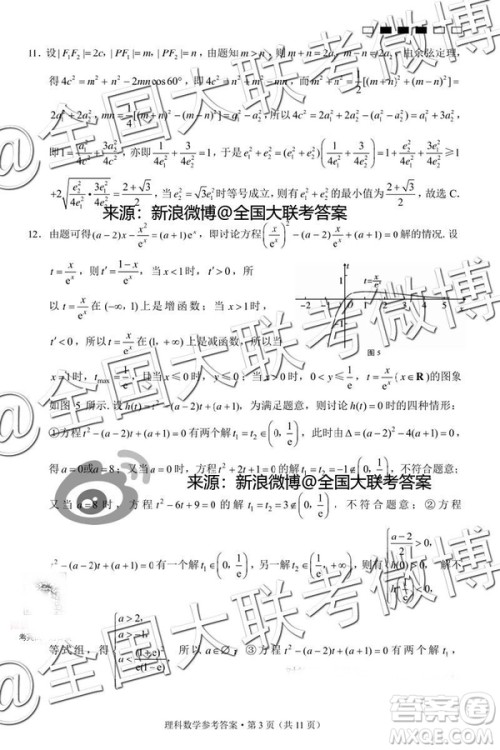 11. 设|F₁F₂|=2c，|PF₁|=m，|PF₂|=n，由题知m>n，则m+n=2a₁，m-n=2a₂，由余弦定理，
得4c²=m²+n²-2mncos60°，即4c²=m²+n²-mn，而m²+n²=½[(m+n)²+(m-n)²]=
2a₁²+2a₂²，mn=¼[(m+n)²-(m-n)²]=a₁²-a₂²，所以4c²=2a₁²+2a₂²-(a₁²-a₂²)=a₁²+3a₂²，
即1=a₁²/4c²+3a₂²/4c²，亦即1=1/4e₁²+3/4e₂²，于是e₁²+e₂²=(e₁²+e₂²)(1/4e₁²+3/4e₂²)=1+e₂²/4e₁²+3e₁²/4e₂²≥1
+2√(e₂²/4e₁²·3e₁²/4e₂²)=(2+√3)/2，当e₂²=√3e₁²时等号成立，则e₁²+e₂²的最小值为(2+√3)/2，故选C.
来源：新浪微博@全国大联考答案
12. 由题可得(a-2)x-x²/eˣ=(a+1)eˣ，即讨论方程(x/eˣ)²-(a-2)x/eˣ+(a+1)=0解的情况. 设
t=x/eˣ，则t'=(1-x)/eˣ，当x<1时，t'>0，所
以t=x/eˣ在(-∞, 1)上是增函数；当x>1时，
t'<0，所以t=x/eˣ在(1, +∞)上是减函数，当
x=1时，tmax=1/e，且当x≤0时，t≤0，当x>0时，0<y≤1/e，t=x/eˣ(x∈R)的图象
-2 -1 1 2 3 4 5
图5
如图5所示. 设h(t)=t²-(a-2)t+(a+1)，为满足题意，则讨论h(t)=0时的四种情形：
①方程t²-(a-2)t+(a+1)=0有两个解t₁=t₂∈(0, 1/e)，此时由Δ=(a-2)²-4(a+1)=0，
得a=0或a=8；又当a=0时，方程t²+2t+1=0的解t₁=t₂=-1∉(0, 1/e)，不符合题意；
来源：新浪微博@全国大联考答案
又当a=8时，方程t²-6t+9=0的解t₁=t₂=3∉(0, 1/e)，不符合题意；②方程
t²-(a-2)t+(a+1)=0有一个解t₁∈(0, 1/e)，另一解t₂ 则有{(a-2)/2>0, h(0)≤0, 解不
等式组，得{a>2, a≤-1, 所以a∈∅；③方程t²-(a-2)t+(a+1)=0有两个解t₁，
理科数学参考答案·第3页（共11页）
@全国大联考微博
@全国大联考微博
@全国大联考微博
答案圈
MXQE.COM